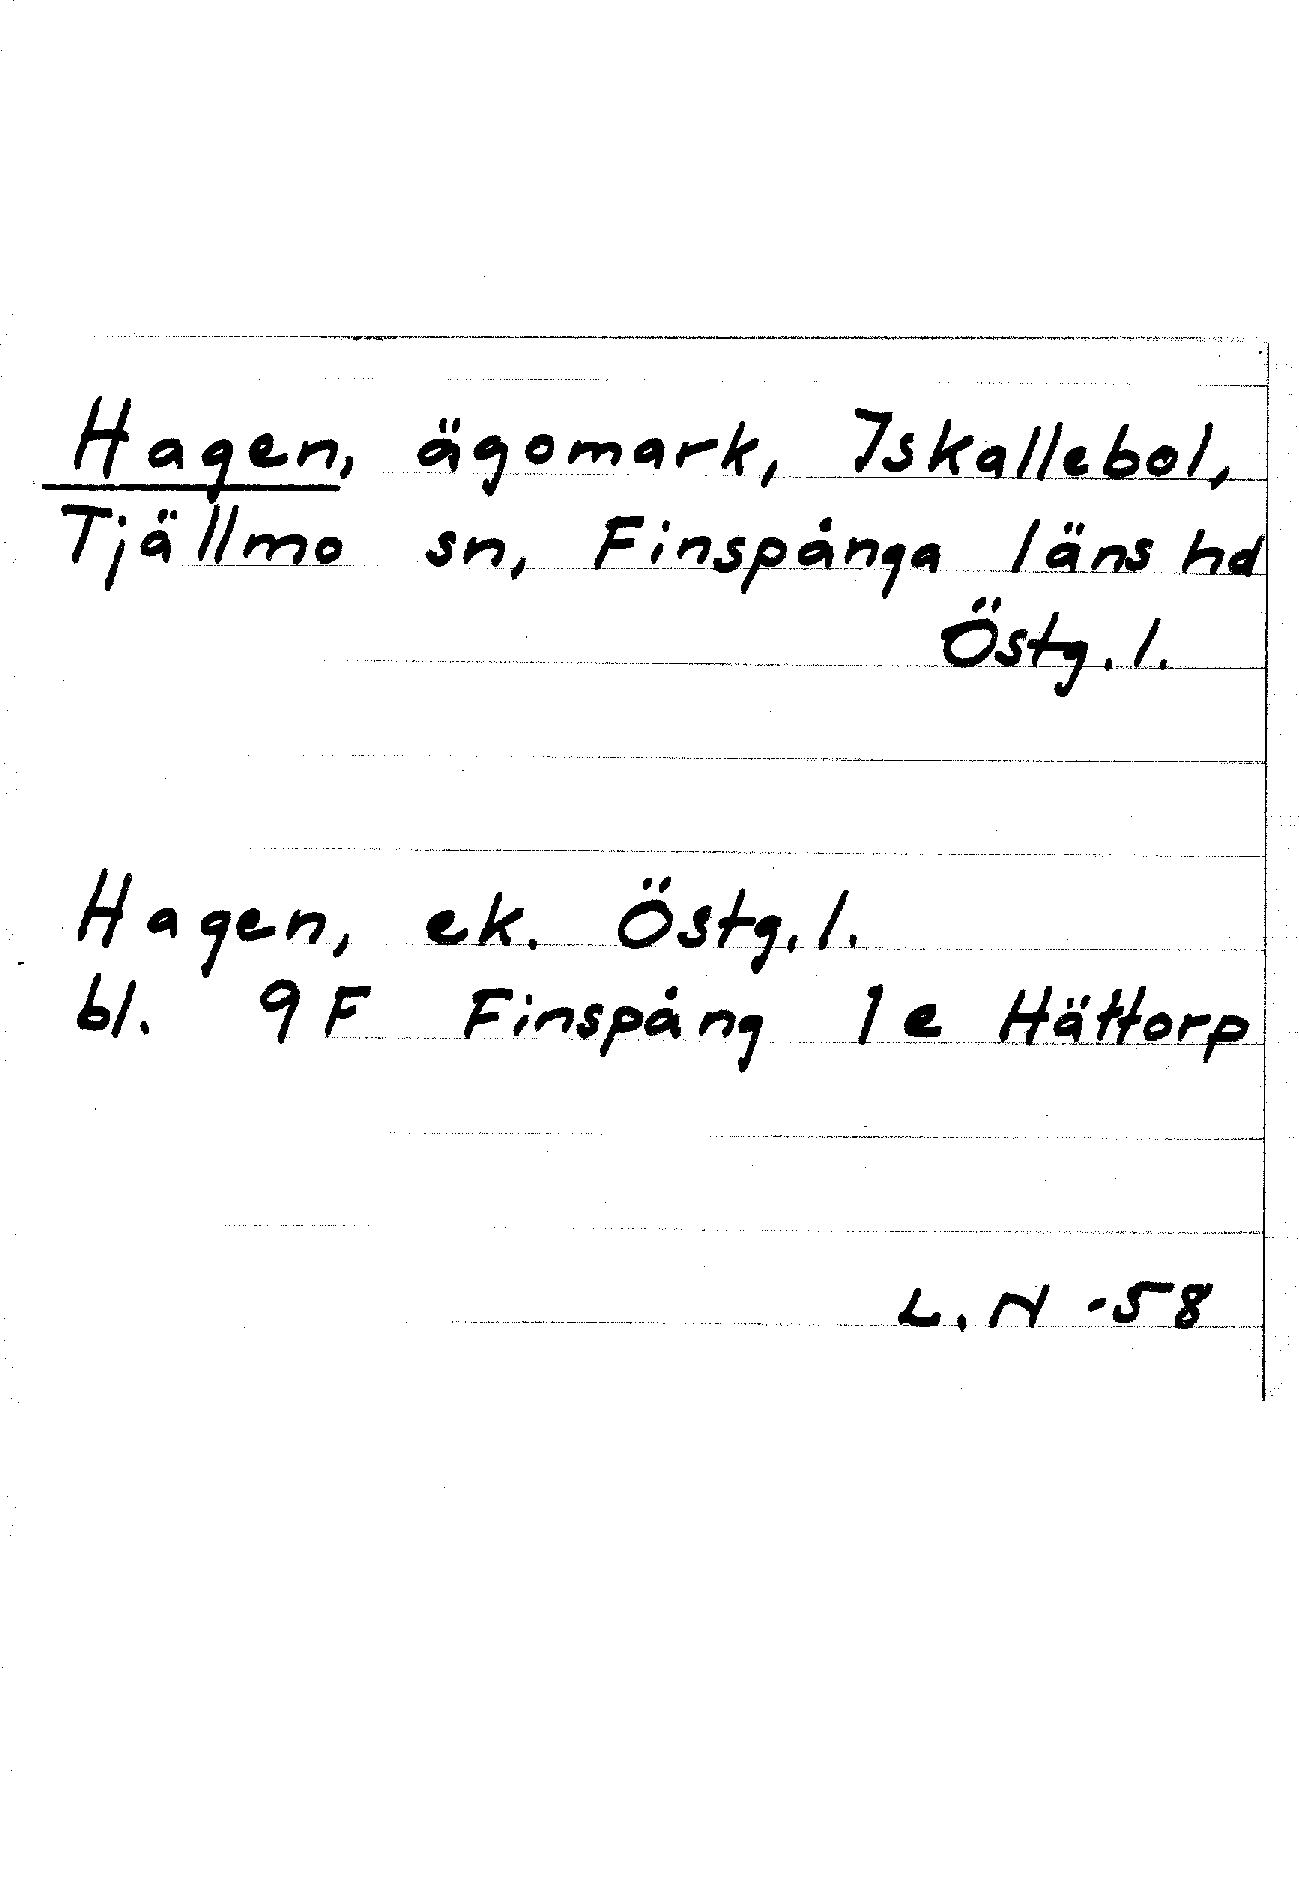 Hagen, ägomark, Iskallebol,
Tjällmo sn, Finspånga läns hd
Östg. l.
Hagen, ek. Östg. l.
bl. 9F Finspång 1e Hättorp
L. N -58